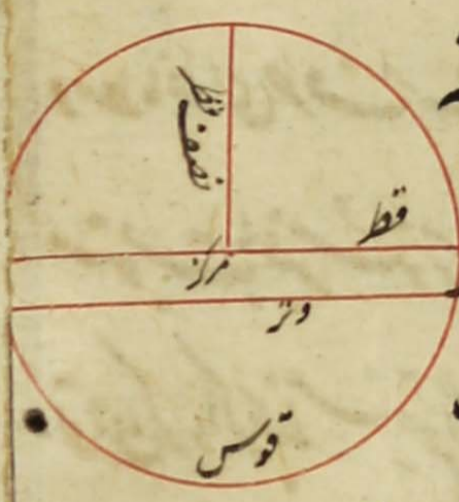 نصف قطر
قطر
مرکز
وتر
قوس